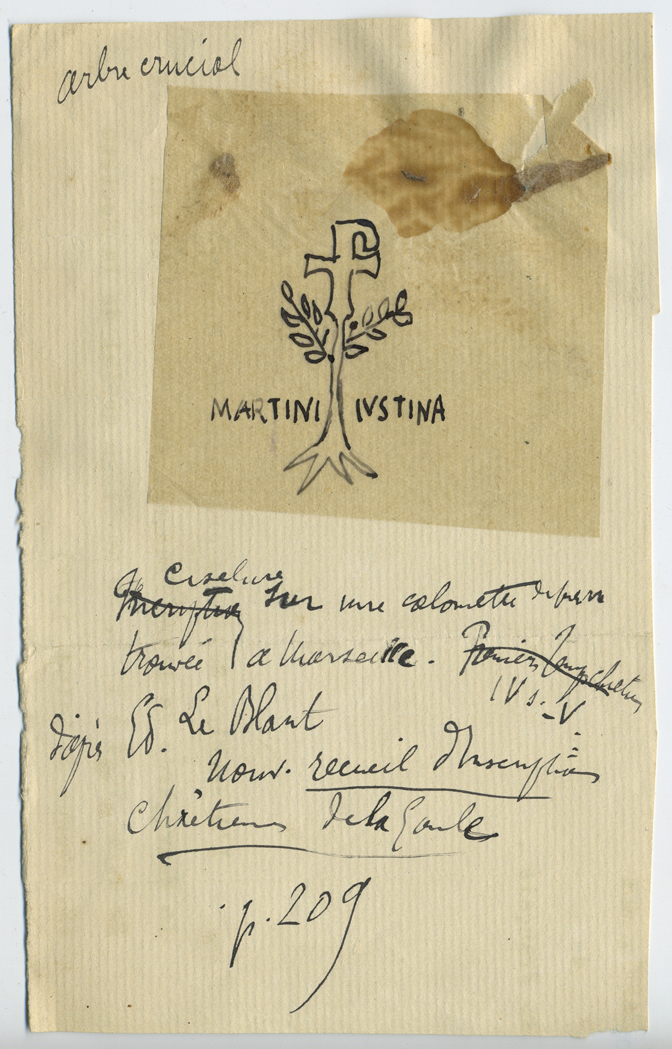 arbre crucial
MARTINI IVSTINA
Ciselure
Inscription sur une colonnette de pierre
trouvée à Marseille. Premiers Temps chrétiens
IV s. - V
d'après Ed. Le Blant
Nouv. recueil d'Inscriptions
chrétiennes de la Gaule
p. 209